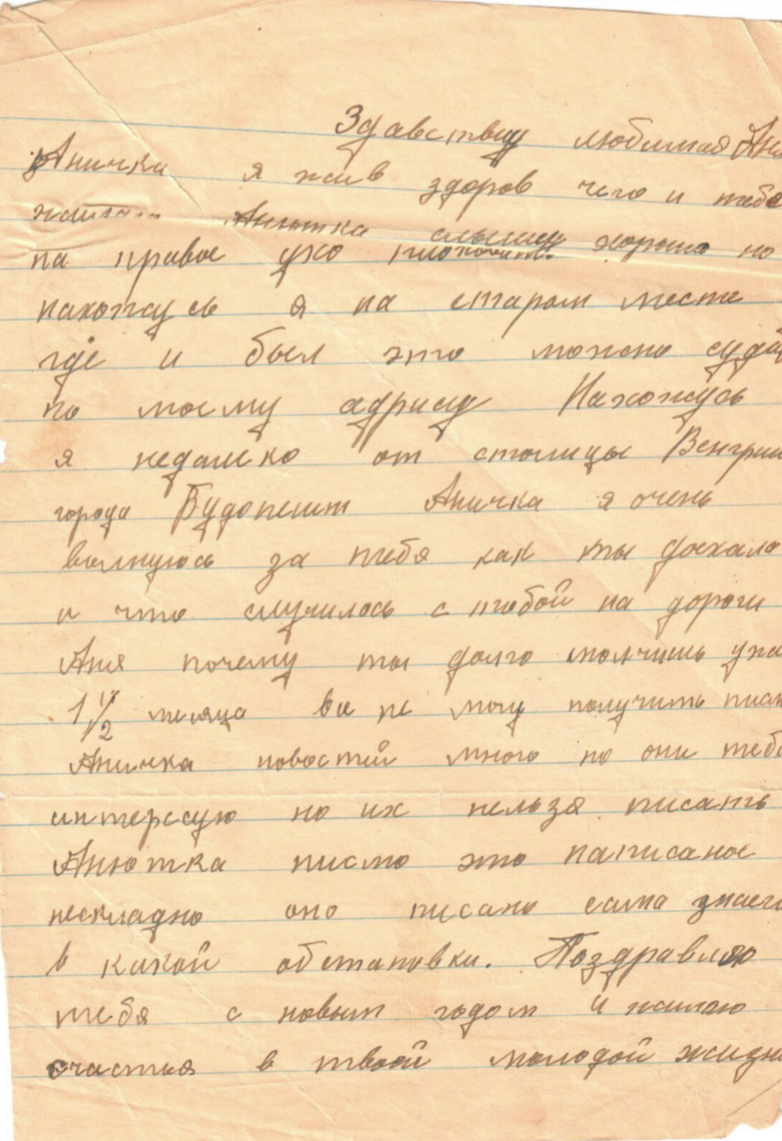 Здавствуй любимая
Аничка я жив здоров чего и тебе
Анютка слышу хорошо но
на правое ухо
нахожусь я на старом месте
где и был это можно суди
по моему адрису Нахожусь
я недалеко от столицы Венгрии
города Будопешт Аничка я очень
волнуюсь за тебя как ты доехала
и что случилось с тобой на дороги
Аня почему ты долго молчишь уже
1 1/2 месяца не могу получить писм
Аничка новостей много но они тебе
интерсую но их нельзя писать
Анютка писмо это написаное
нескладно оно писано сама знаеш
в какой обстановки. Поздравляю
тебя с новым годом и жилаю
счастья в твоей молодой жизни